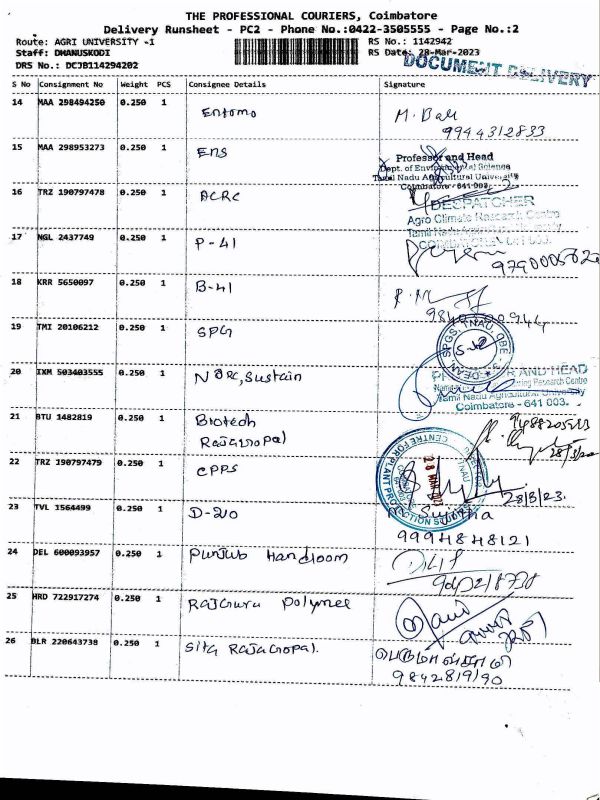 THE PROFESSIONAL COURIERS, Coimbatore
Delivery Runsheet - PC2 - Phone No.:0422-3505555 - Page No.:2
Route: AGRI UNIVERSITY -1
RS No.: 1142942
Staff: DHANUSKODI
RS Date: 28-Mar-2023
DRS No.: DCJB114294202
DOCUMENT DELIVERY
S No Consignment No Weight PCS Consignee Details Signature
14 MAA 298494250 0.250 1 Entomo M. Bale
9944312833
15 MAA 298953273 0.250 1 ENS
Professor and Head
Dept. of Environmental Science
Tamil Nadu Agricultural University
Coimbatore - 641 003.
16 TRZ 190797478 0.250 1 ACRC
DESPATCHER
Agro Climate Research Centre
Tamil Nadu
COIMBATORE - 641 003.
17 NGL 2437749 0.250 1 P-41
18 KRR 5650097 0.250 1 B-41
19 TMI 20106212 0.250 1 SPG
DEAN SPGS, TNAU, CBE
20 IXM 503403555 0.250 1 Sustain
PROFESSOR AND HEAD
Tamil Nadu Agricultural University
Coimbatore - 641 003.
21 BTU 1482819 0.250 1 Biotech
Rajagopal
22 TRZ 190797479 0.250 1 CPPS
CENTRE FOR PLANT PROTECTION STUDIES
TNAU
28 MAR 2023
28/3/23.
23 TVL 1564499 0.250 1 D-20 Sujitha
9994848121
24 DEL 600093957 0.250 1 Punjub Handloom
25 HRD 722917274 0.250 1 Rajguru Polymee
26 BLR 220643738 0.250 1 Sita Rajagopal.
9842819190